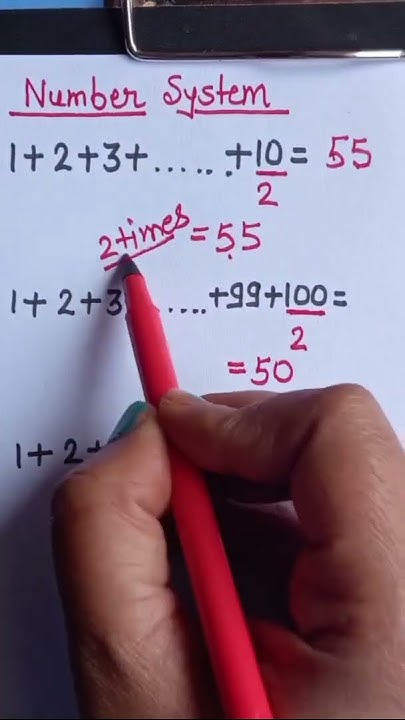 Number System
1+2+3+......+10= 55
2
2 times = 55
1+2+3 ....+99+100=
2
=50
1+2+